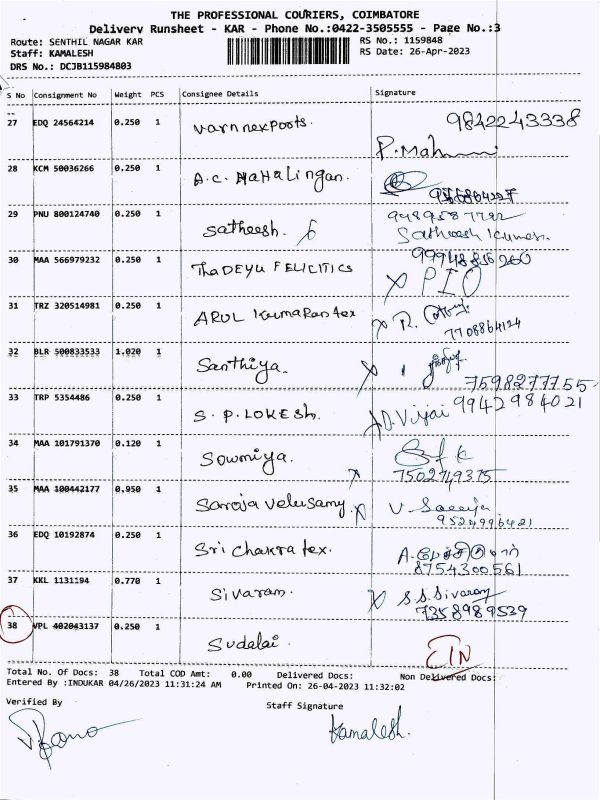 THE PROFESSIONAL COURIERS, COIMBATORE
Delivery Runsheet - KAR - Phone No.:0422-3505555 - Page No.:3
Route: SENTHIL NAGAR KAR RS No.: 1159848
Staff: KAMALESH RS Date: 26-Apr-2023
DRS No.: DCJB115984803
S No Consignment No Weight PCS Consignee Details Signature
27 EDQ 24564214 0.250 1 varnnexpoots. 9842243338
P. Mah
28 KCM 50036266 0.250 1 A.C. MAHALingan.
29 PNU 800124740 0.250 1 Satheesh. 9489587792
Satheesh Kumar.
30 MAA 566979232 0.250 1 ThaDEYU FELICITICS 99948856260
X PIO
31 TRZ 320514981 0.250 1 ARUL KumaRan tex X R.
7708864124
32 BLR 500833533 1.020 1 Santhiya. X
7598277755
33 TRP 5354486 0.250 1 S. P. LOKESh. D. Vijai 9942984021
34 MAA 101791370 0.120 1 Sowmiya.
7502749375
35 MAA 100442177 0.950 1 Saroja velusamy. X V. Saroja
9524996421
36 EDQ 10192874 0.250 1 Sri chakra tex. A.
8754300561
37 KKL 1131194 0.770 1 Sivaram. X S.S. Sivaram
7358989539
38 VPL 402043137 0.250 1 Sudalai.
Total No. Of Docs: 38 Total COD Amt: 0.00 Delivered Docs: Non Delivered Docs:
Entered By :INDUKAR 04/26/2023 11:31:24 AM Printed On: 26-04-2023 11:32:02
Verified By Staff Signature
Kamalesh.